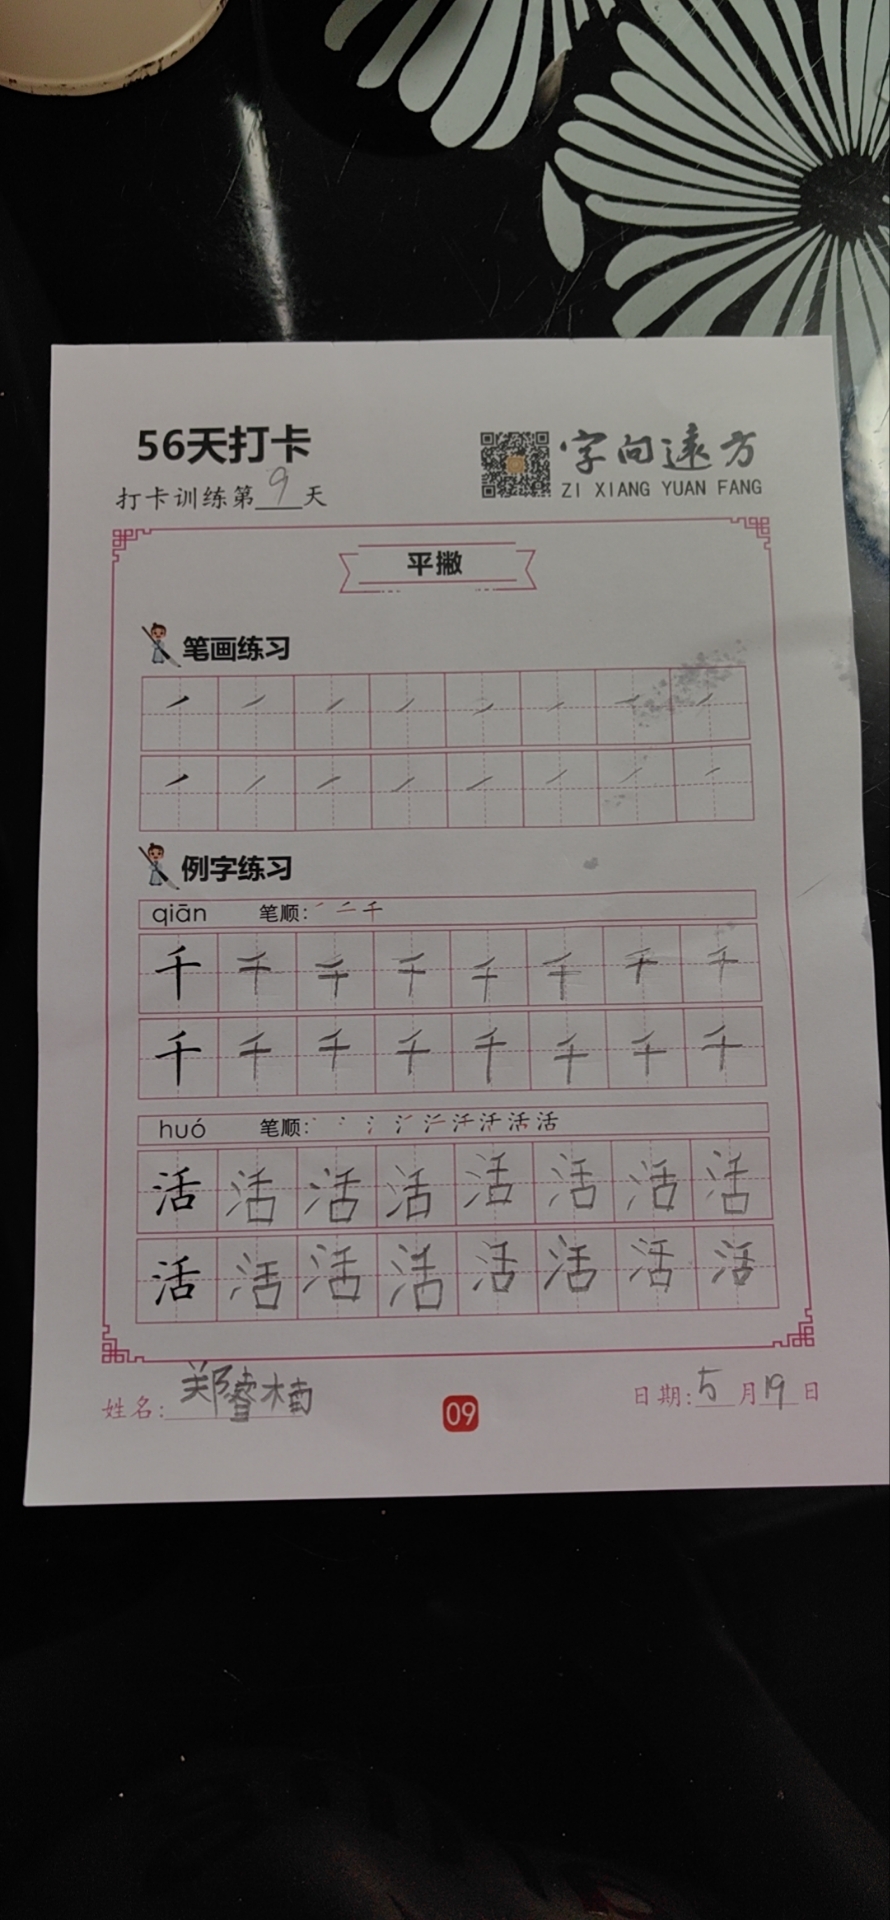 56天打卡
打卡训练第9天
字向远方
ZI XIANG YUAN FANG
平撇
笔画练习
例字练习
qiān 笔顺:
千千千千千千千千
千千千千千千千千
huó 笔顺:
活活活活活活活活
活活活活活活活活
姓名:郑睿楠
09
日期:5月19日